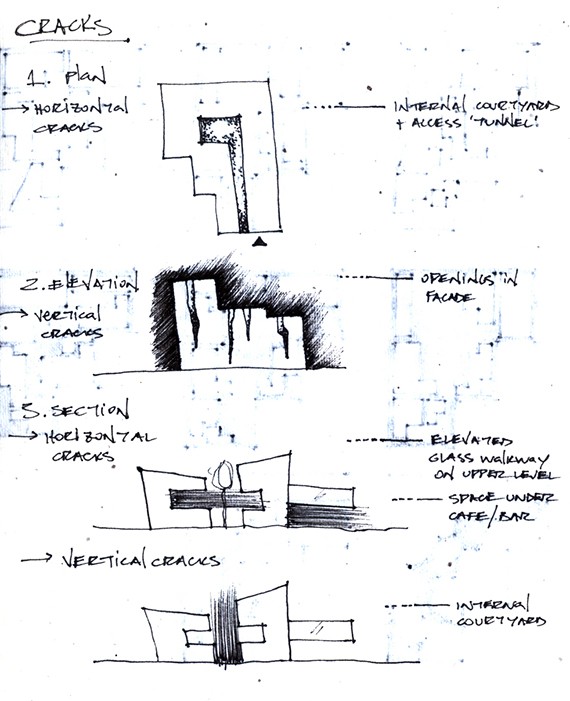 CRACKS
1. Plan
→ HORIZONTAL
CRACKS
INTERNAL COURTYARD
+ ACCESS 'TUNNEL'
2. ELEVATION
→ VERTICAL
CRACKS
OPENINGS IN
FACADE
3. SECTION
→ HORIZONTAL
CRACKS
ELEVATED
GLASS WALKWAY
ON UPPER LEVEL
SPACE UNDER
CAFE/BAR
→ VERTICAL CRACKS
INTERNAL
COURTYARD